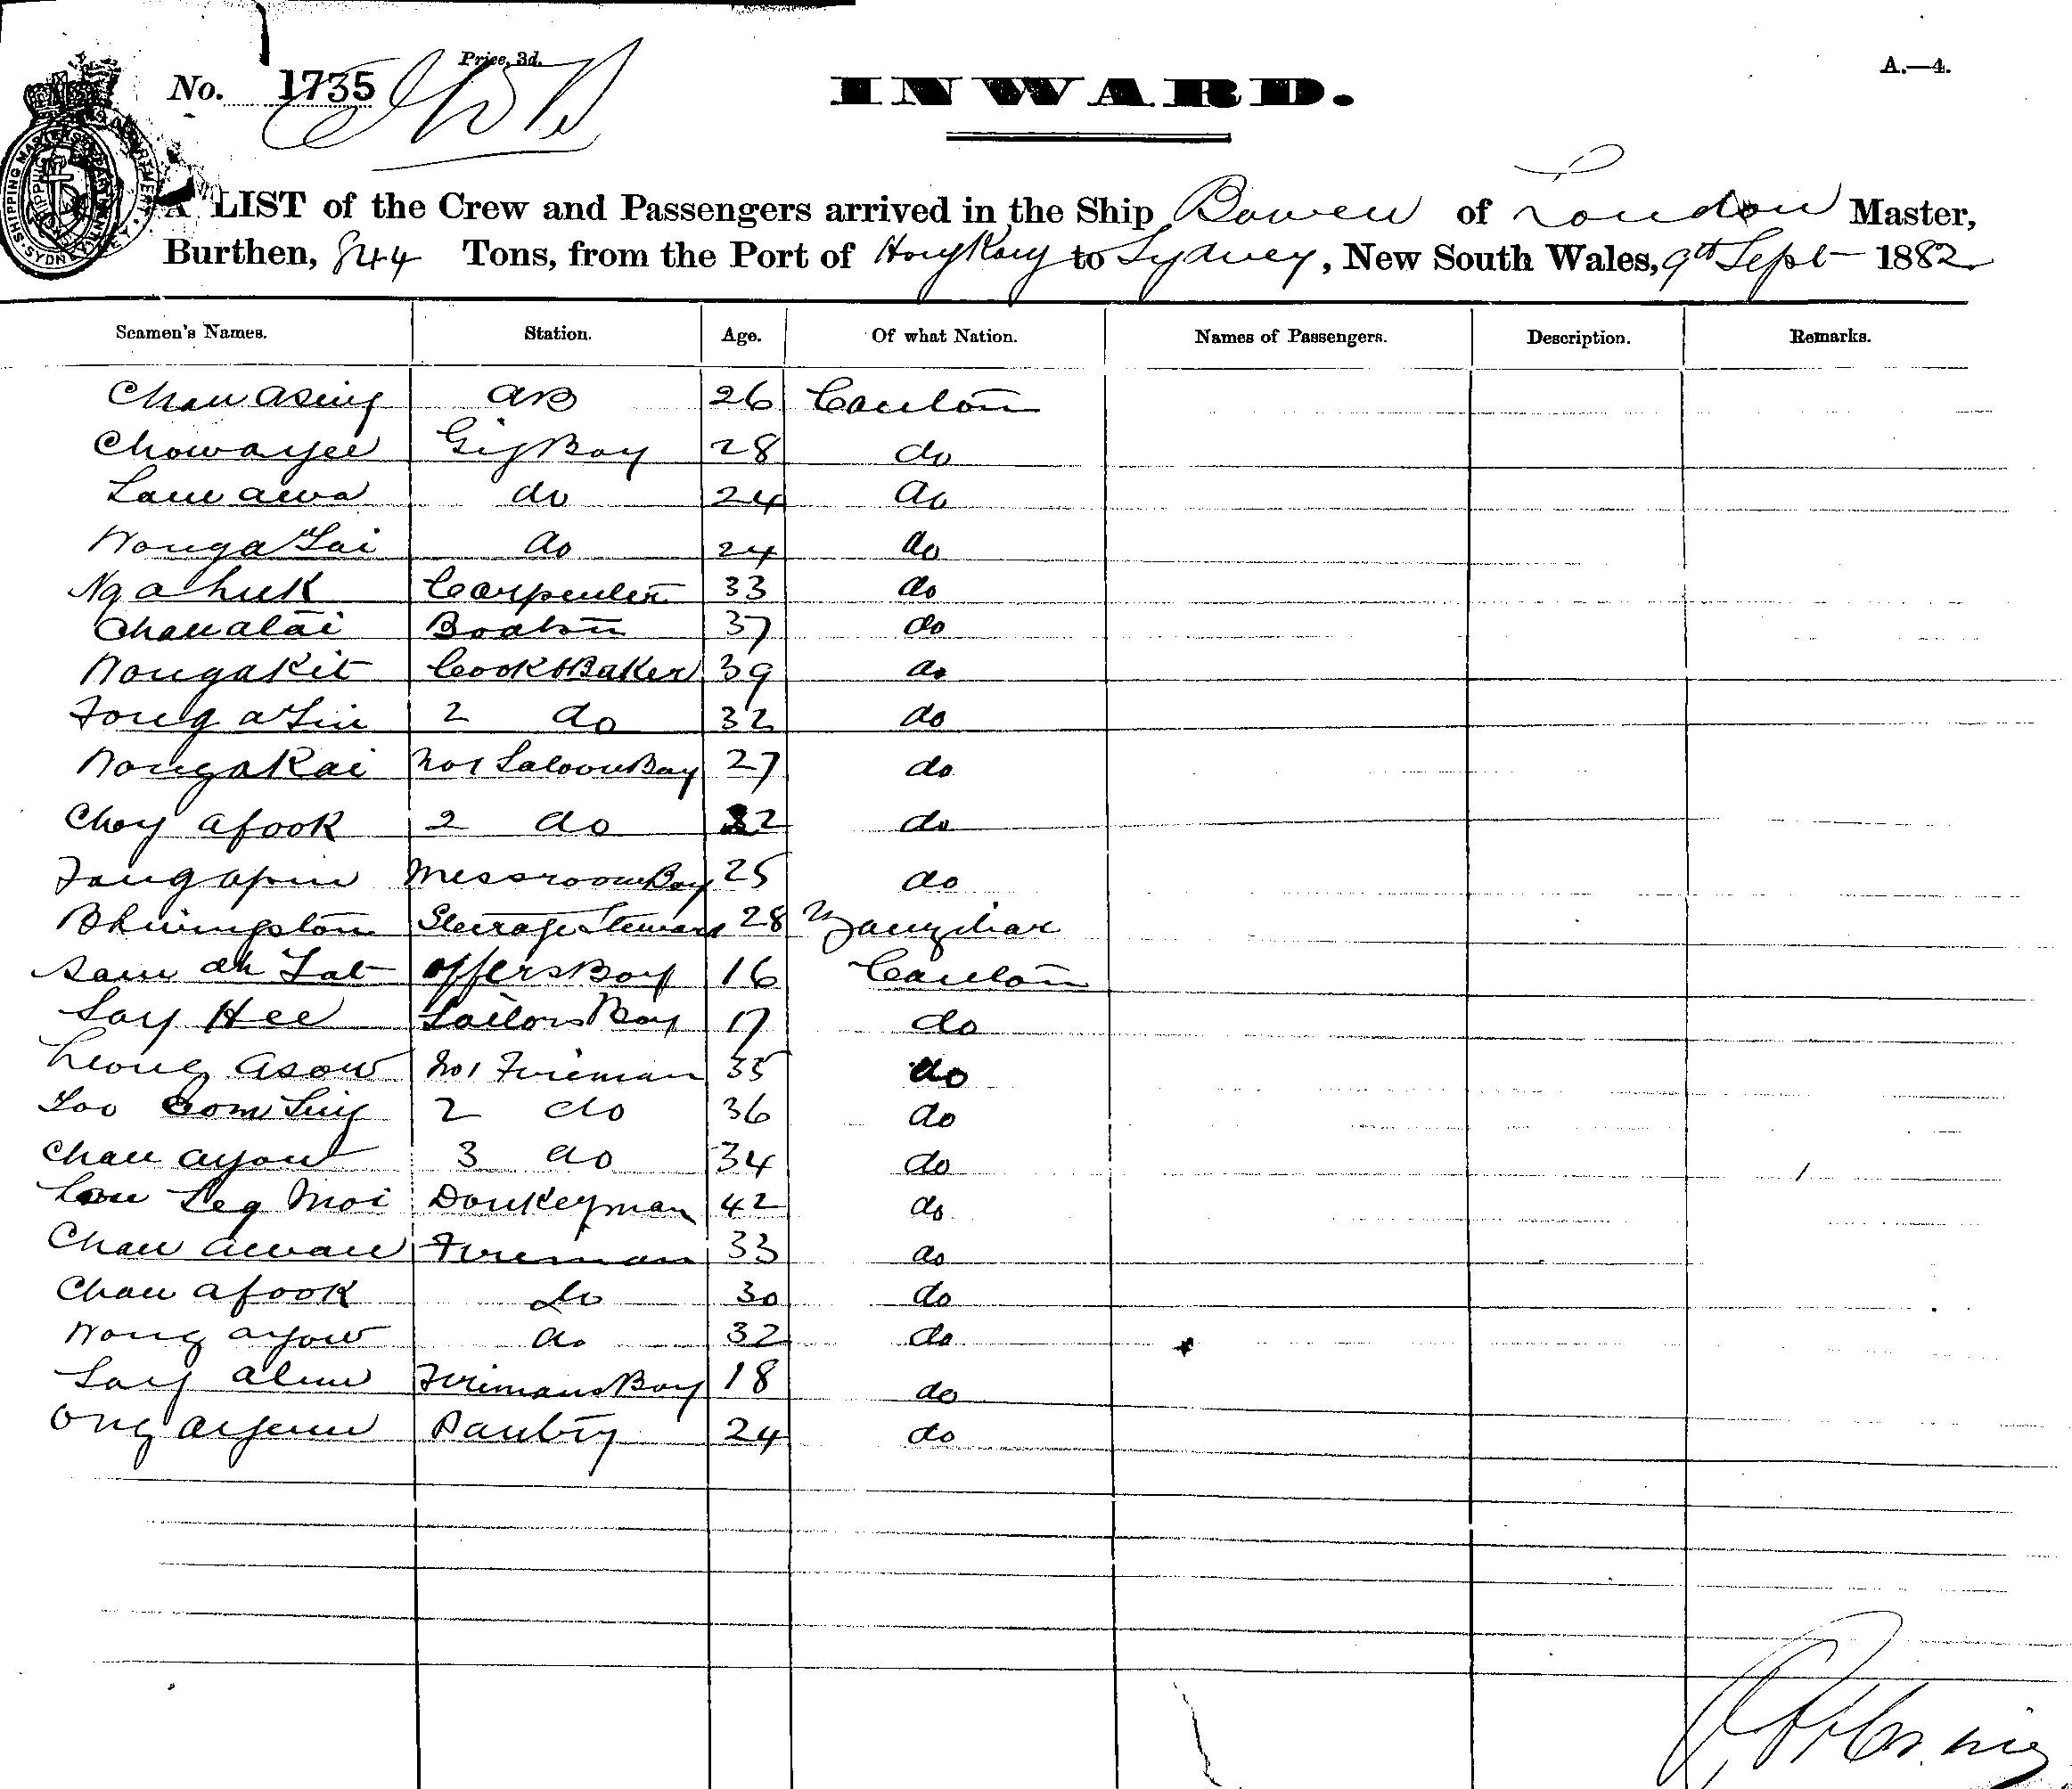 No. 1735 Price, 3d. A.—4.
INWARD.
A LIST of the Crew and Passengers arrived in the Ship Bowen of London Master,
Burthen, 844 Tons, from the Port of Hong Kong to Sydney, New South Wales, 9th Sept 1882
Seamen's Names. Station. Age. Of what Nation. Names of Passengers. Description. Remarks.
Chan asing AB 26 Canton
Chow ayee Gig Boy 28 do
Lam awa do 24 do
Wong a Sai do 24 do
Ng a huk Carpenter 33 do
Chan a tai Boatsn 37 do
Wong a Kit Cook & Baker 39 do
Fong a Sin 2 do 32 do
Wong a Kai No 1 Saloon Boy 27 do
Choy afook 2 do 22 do
Fong apin Messroom Boy 25 do
B Livingston Steerage Steward 28 Zanzibar
Sam ah Tat Offers Boy 16 Canton
Soy Hee Sailors Boy 17 do
Leong asow No 1 Fireman 35 do
Loo Com Sing 2 do 36 do
Chan ayow 3 do 34 do
Leg Moi Donkeyman 42 do
Chan awan Fireman 33 do
Chan afook do 30 do
Wong ayow do 32 do
Soy Firemans Boy 18 do
Ong Pantry 24 do